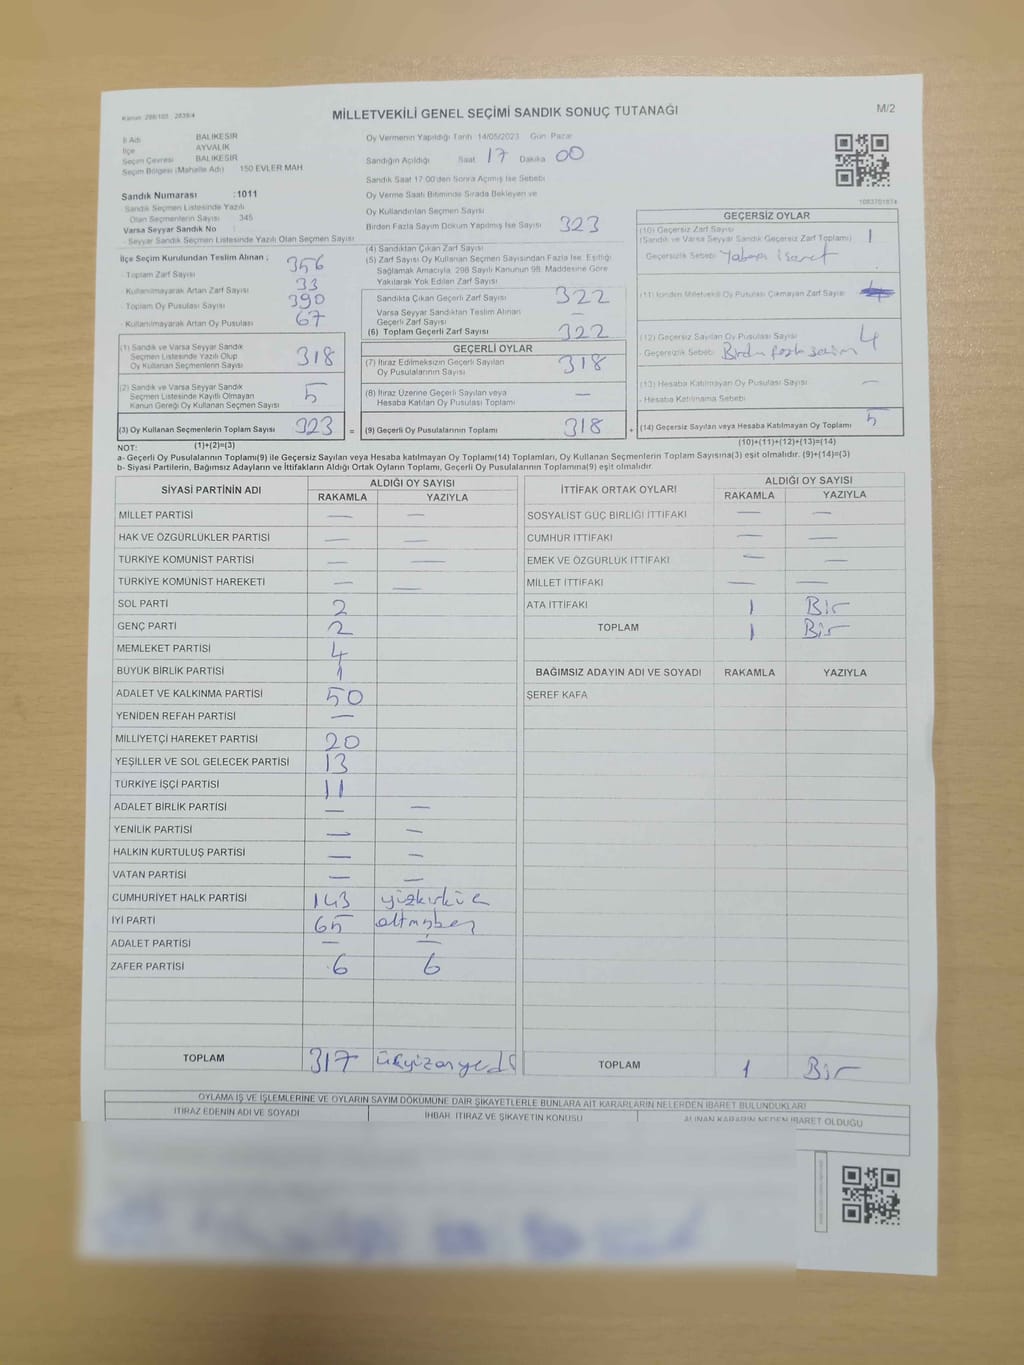 MİLLETVEKİLİ GENEL SEÇİMİ SANDIK SONUÇ TUTANAĞI
M/2
İl Adı BALIKESİR
İlçe AYVALIK
Seçim Çevresi BALIKESİR
Seçim Bölgesi (Mahalle Adı) 150 EVLER MAH
Sandık Numarası :1011
Sandık Seçmen Listesinde Yazılı
Olan Seçmenlerin Sayısı 345
Varsa Seyyar Sandık No
Seyyar Sandık Seçmen Listesinde Yazılı Olan Seçmen Sayısı
İlçe Seçim Kurulundan Teslim Alınan ;
- Toplam Zarf Sayısı 356
- Kullanılmayarak Artan Zarf Sayısı 33
- Toplam Oy Pusulası Sayısı 390
- Kullanılmayarak Artan Oy Pusulası 67
(1) Sandık ve Varsa Seyyar Sandık
Seçmen Listesinde Yazılı Olup
Oy Kullanan Seçmenlerin Sayısı 318
(2) Sandık ve Varsa Seyyar Sandık
Seçmen Listesinde Kayıtlı Olmayan
Kanun Gereği Oy Kullanan Seçmen Sayısı 5
(3) Oy Kullanan Seçmenlerin Toplam Sayısı 323 =
(1)+(2)=(3)
Oy Vermenin Yapıldığı Tarih 14/05/2023 Gün Pazar
Sandığın Açıldığı Saat 17 Dakika 00
Sandık Saat 17:00'den Sonra Açılmış İse Sebebi
Oy Verme Saati Bitiminde Sırada Bekleyen ve
Oy Kullandırılan Seçmen Sayısı
Birden Fazla Sayım Döküm Yapılmış İse Sayısı 323
(4) Sandıktan Çıkan Zarf Sayısı
(5) Zarf Sayısı Oy Kullanan Seçmen Sayısından Fazla İse, Eşitliği
Sağlamak Amacıyla, 298 Sayılı Kanunun 98. Maddesine Göre
Yakılarak Yok Edilen Zarf Sayısı
Sandıkta Çıkan Geçerli Zarf Sayısı 322
Varsa Seyyar Sandıktan Teslim Alınan
Geçerli Zarf Sayısı —
(6) Toplam Geçerli Zarf Sayısı 322
GEÇERLİ OYLAR
(7) İtiraz Edilmeksizin Geçerli Sayılan
Oy Pusulalarının Sayısı 318
(8) İtiraz Üzerine Geçerli Sayılan veya
Hesaba Katılan Oy Pusulası Toplamı —
(9) Geçerli Oy Pusulalarının Toplamı 318 +
1083701874
GEÇERSİZ OYLAR
(10) Geçersiz Zarf Sayısı
(Sandık ve Varsa Seyyar Sandık Geçersiz Zarf Toplamı) 1
Geçersizlik Sebebi Yabancı işaret
(11) İçinden Milletvekili Oy Pusulası Çıkmayan Zarf Sayısı
(12) Geçersiz Sayılan Oy Pusulası Sayısı 4
- Geçersizlik Sebebi Birden fazla seçim
(13) Hesaba Katılmayan Oy Pusulası Sayısı —
- Hesaba Katılmama Sebebi
(14) Geçersiz Sayılan veya Hesaba Katılmayan Oy Toplamı 5
(10)+(11)+(12)+(13)=(14)
NOT:
a- Geçerli Oy Pusulalarının Toplamı(9) ile Geçersiz Sayılan veya Hesaba katılmayan Oy Toplamı(14) Toplamları, Oy Kullanan Seçmenlerin Toplam Sayısına(3) eşit olmalıdır. (9)+(14)=(3)
b- Siyasi Partilerin, Bağımsız Adayların ve İttifakların Aldığı Ortak Oyların Toplamı, Geçerli Oy Pusulalarının Toplamına(9) eşit olmalıdır.
SİYASİ PARTİNİN ADI ALDIĞI OY SAYISI
RAKAMLA YAZIYLA
MİLLET PARTİSİ — —
HAK VE ÖZGÜRLÜKLER PARTİSİ — —
TÜRKİYE KOMÜNİST PARTİSİ — —
TÜRKİYE KOMÜNİST HAREKETİ — —
SOL PARTİ 2
GENÇ PARTİ 2
MEMLEKET PARTİSİ 4
BÜYÜK BİRLİK PARTİSİ 1
ADALET VE KALKINMA PARTİSİ 50
YENİDEN REFAH PARTİSİ —
MİLLİYETÇİ HAREKET PARTİSİ 20
YEŞİLLER VE SOL GELECEK PARTİSİ 13
TÜRKİYE İŞÇİ PARTİSİ 11
ADALET BİRLİK PARTİSİ — —
YENİLİK PARTİSİ — —
HALKIN KURTULUŞ PARTİSİ — —
VATAN PARTİSİ — —
CUMHURİYET HALK PARTİSİ 143 yüzkırküç
İYİ PARTİ 65 altmışbeş
ADALET PARTİSİ — —
ZAFER PARTİSİ 6 6
TOPLAM 317 üçyüzonyedi
İTTİFAK ORTAK OYLARI ALDIĞI OY SAYISI
RAKAMLA YAZIYLA
SOSYALİST GÜÇ BİRLİĞİ İTTİFAKI — —
CUMHUR İTTİFAKI — —
EMEK VE ÖZGÜRLÜK İTTİFAKI — —
MİLLET İTTİFAKI — —
ATA İTTİFAKI 1 Bir
TOPLAM 1 Bir
BAĞIMSIZ ADAYIN ADI VE SOYADI RAKAMLA YAZIYLA
ŞEREF KAFA
TOPLAM 1 Bir
OYLAMA İŞ VE İŞLEMLERİNE VE OYLARIN SAYIM DÖKÜMÜNE DAİR ŞİKAYETLERLE BUNLARA AİT KARARLARIN NELERDEN İBARET BULUNDUKLARI
İTİRAZ EDENİN ADI VE SOYADI İHBAR, İTİRAZ VE ŞİKAYETİN KONUSU ALINAN KARARIN NEDEN İBARET OLDUĞU